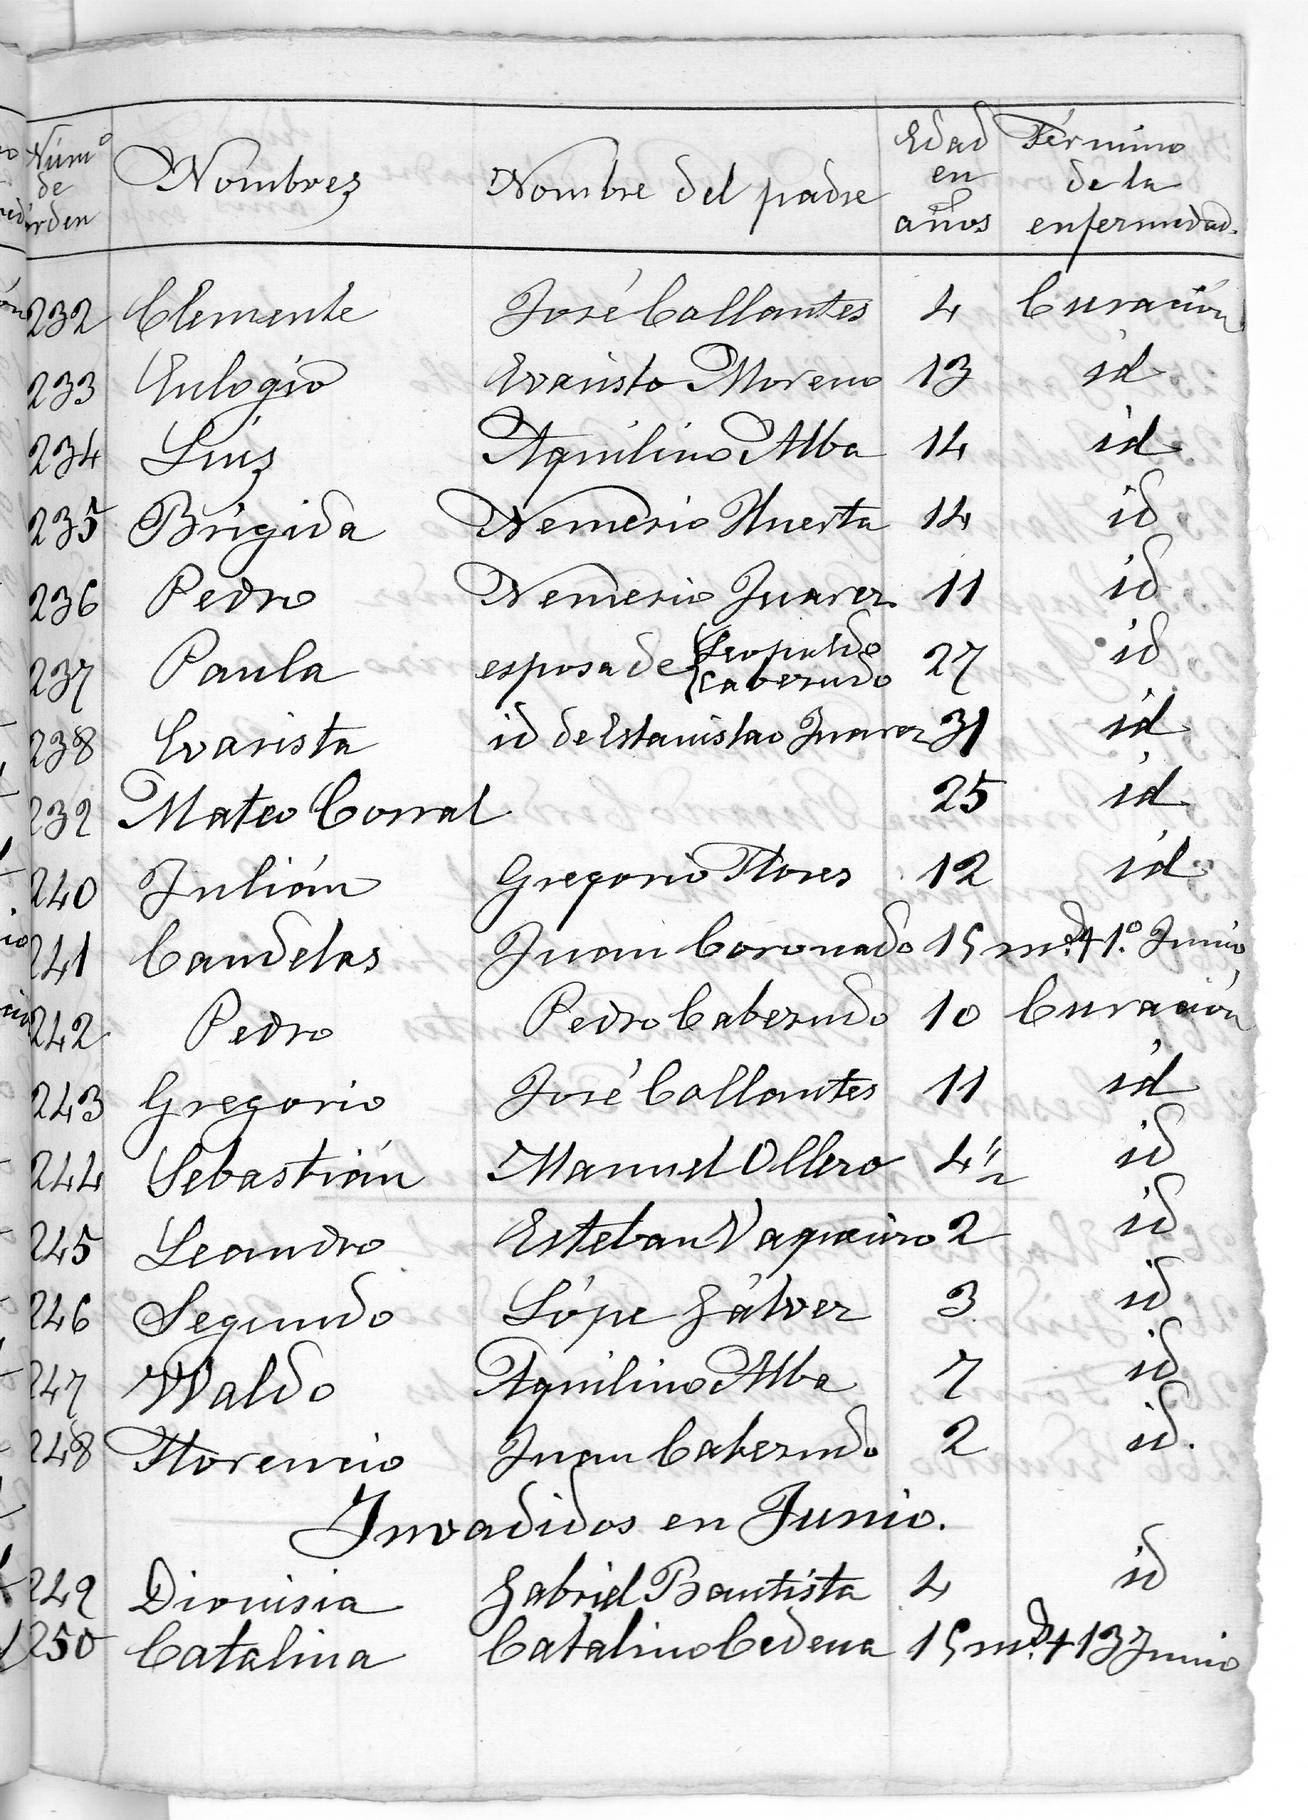 Núm.º de orden Nombres Nombre del padre Edad en años Término de la enfermedad.
232 Clemente José Collantes 4 Curación
233 Eulogio Evaristo Moreno 13 id
234 Luis Aquilino Alba 14 id
235 Brígida Nemesio Huerta 14 id
236 Pedro Nemesio Juarez 11 id
237 Paula esposa de Leopoldo Cabezudo 27 id
238 Evarista id de Estanislao Juarez 31 id
239 Mateo Corral 25 id
240 Julián Gregorio Flores 12 id
241 Candelas Juan Coronado 15 m.s † 1.º Junio
242 Pedro Pedro Cabezudo 10 Curación
243 Gregorio José Collantes 11 id
244 Sebastián Manuel Ollero 4 1/2 id
245 Leandro Esteban Vaqueiro 2 id
246 Segundo Lópe Gálvez 3 id
247 Waldo Aquilino Alba 7 id
248 Florencio Juan Cabezudo 2 id.
Invadidos en Junio.
249 Dionisia Gabriel Bautista 4 id
250 Catalina Catalino Cedena 15 m.s † 13 Junio